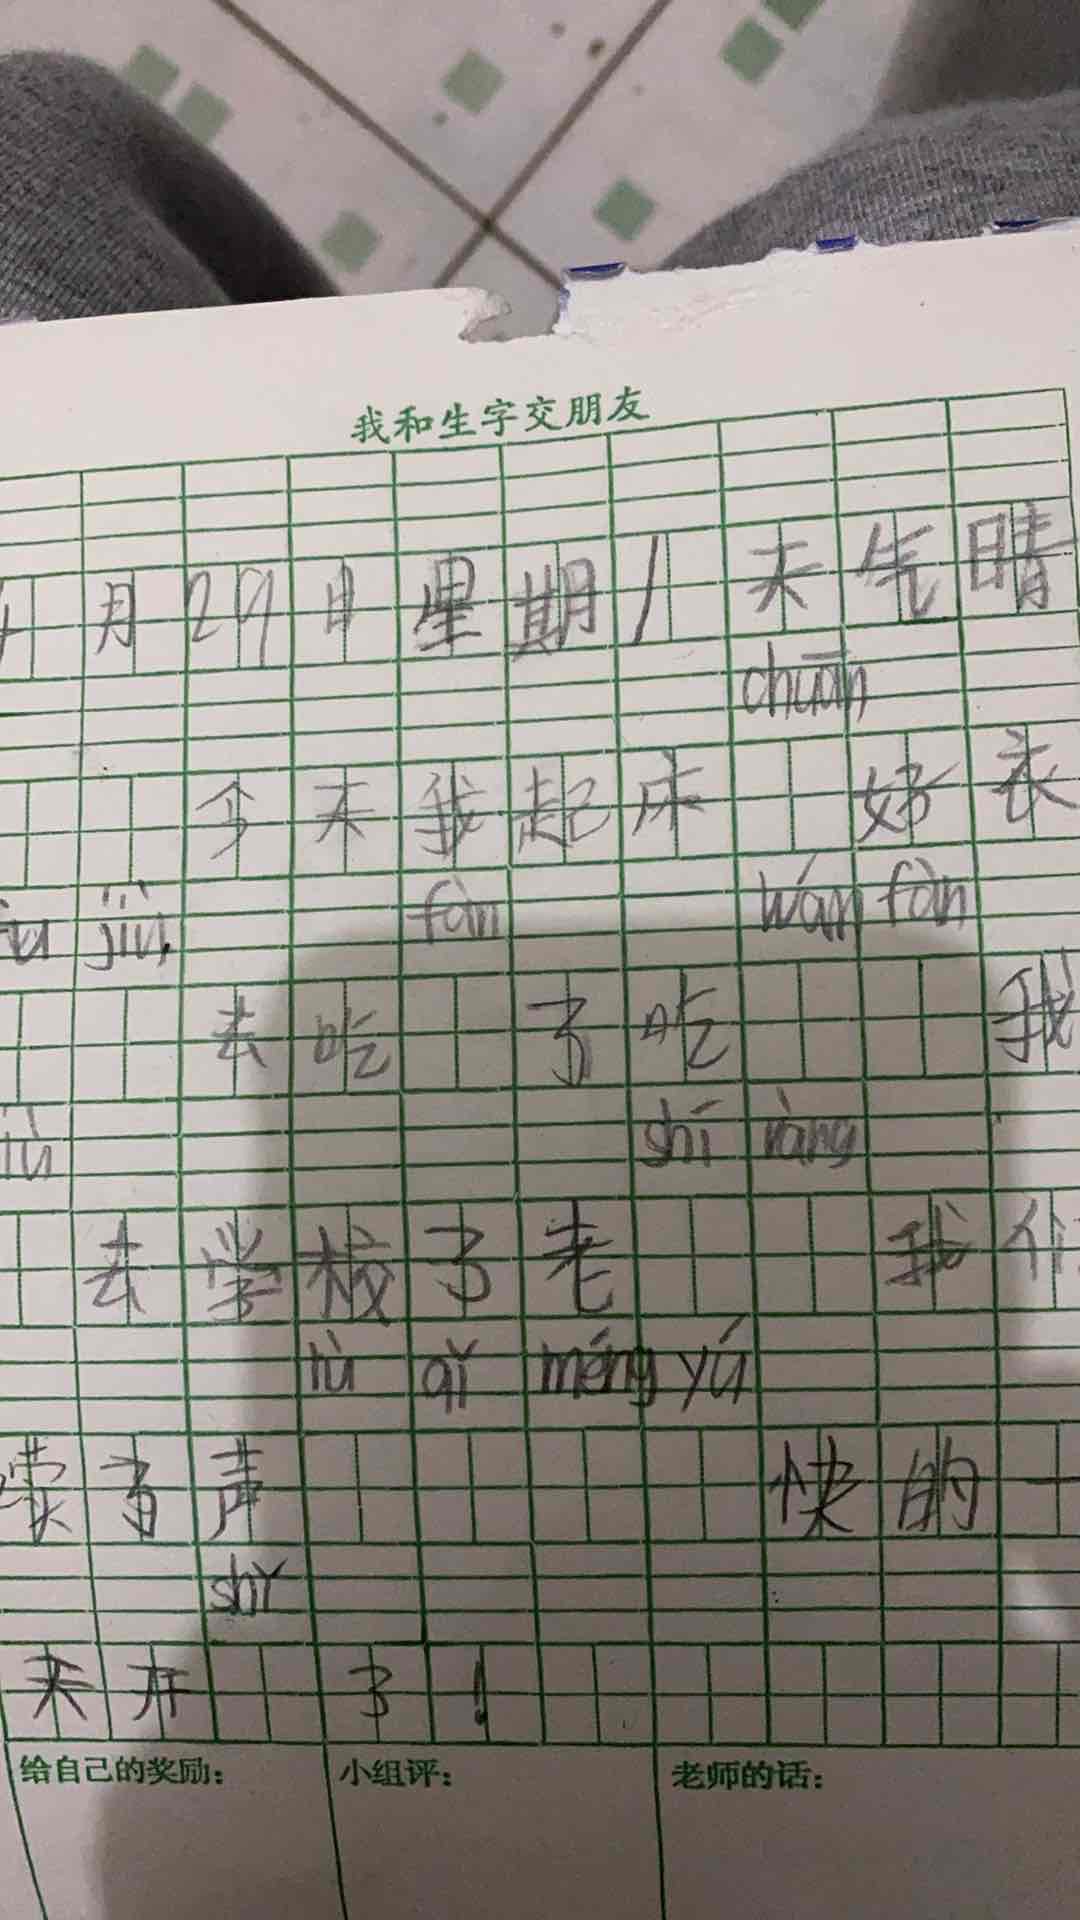 我和生字交朋友
4月29日星期1天气晴
chuān
今天我起床 好衣
jiù fàn wán fàn
去吃 了吃 我
shí ràng
去学校了老 我们
lù qǐ méng yú
读了声 快的一
shǐ
天开 了!
给自己的奖励: 小组评: 老师的话: